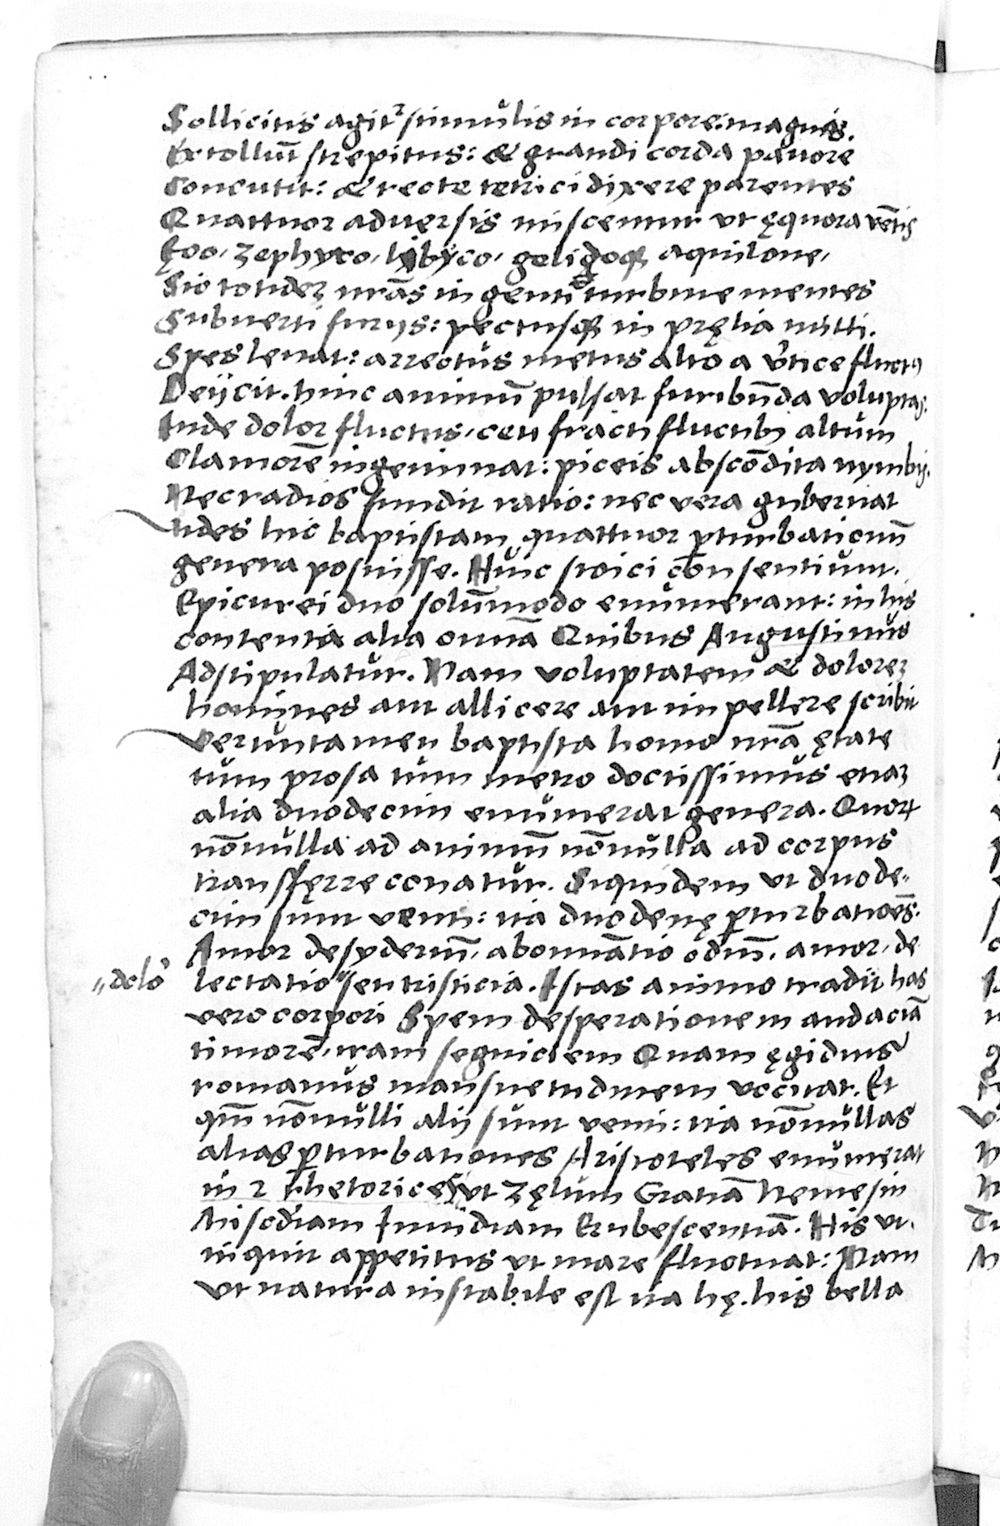 Sollicitis agit᷑ stimulis in corpore. magnas.
Extolliũ strepitus: & grandi corda pauore
Concutit: & recte tetrici dixere parentes
Quattuor aduersis miscentur ut ęquora vẽtis
Eoo, zephyro, libyco, gelidoqꝫ aquilone,
Sic totideꝫ nrãs in genti turbine mentes
Subuerti furijs: pectusqꝫ in pręlia mitti.
Spes leuat: arrectus metus alto a v̾tice fluctꝰ
Deijcit. hinc animũ pulsat furibũda voluptas:
Inde dolor fluctus, ceu fracti fluctibꝫ altum
Clamorẽ ingeminat: piceis abscõdita nymbis.
Nec radios fundit ratio: nec vera gubernat
uides hic baptistam quattuor ꝑturbationũ
genera posuisse. Huic stoici consentiunt.
Epicurei duo solũmodo enumerant: in his
contenta alia omnia Quibus Augustinus
Adstipulatur. Nam voluptatem & doloreꝫ
homines aut allicere aut impellere scribit
veruntamen baptista homo nrã ętate
tum prosa tum metro doctissimus etiaꝫ
alia duodecim enumerat genera. Quoꝝ
nõnulla ad animũ nõnulla ad corpus
transferre conatur. Siquidem ut duode-
cim sunt venti: ita duodenę ꝑturbatiões.
Amor desyderiũ, abominãtio odiũ, amor, de
"dolor
lectatio "seu tristicia. Istas animo tradit has
vero corpori Spem desperationem audaciã
timorẽ, iram segniciem Quam ęgidius
romanus mansuetudinem vocitat. Et
qm̃ nõnulli alij sunt venti: ita nõnullas
alias ꝑturbationes Aristoteles enumerat
in 2 rhetorices ut zęlum Gratiã Nemesin
Misc̃diam Inuidiam Erubescentiã. His ut
inquit appetitus ut mare fluctuat: Nam
ut natura instabile est ita hę. his bella